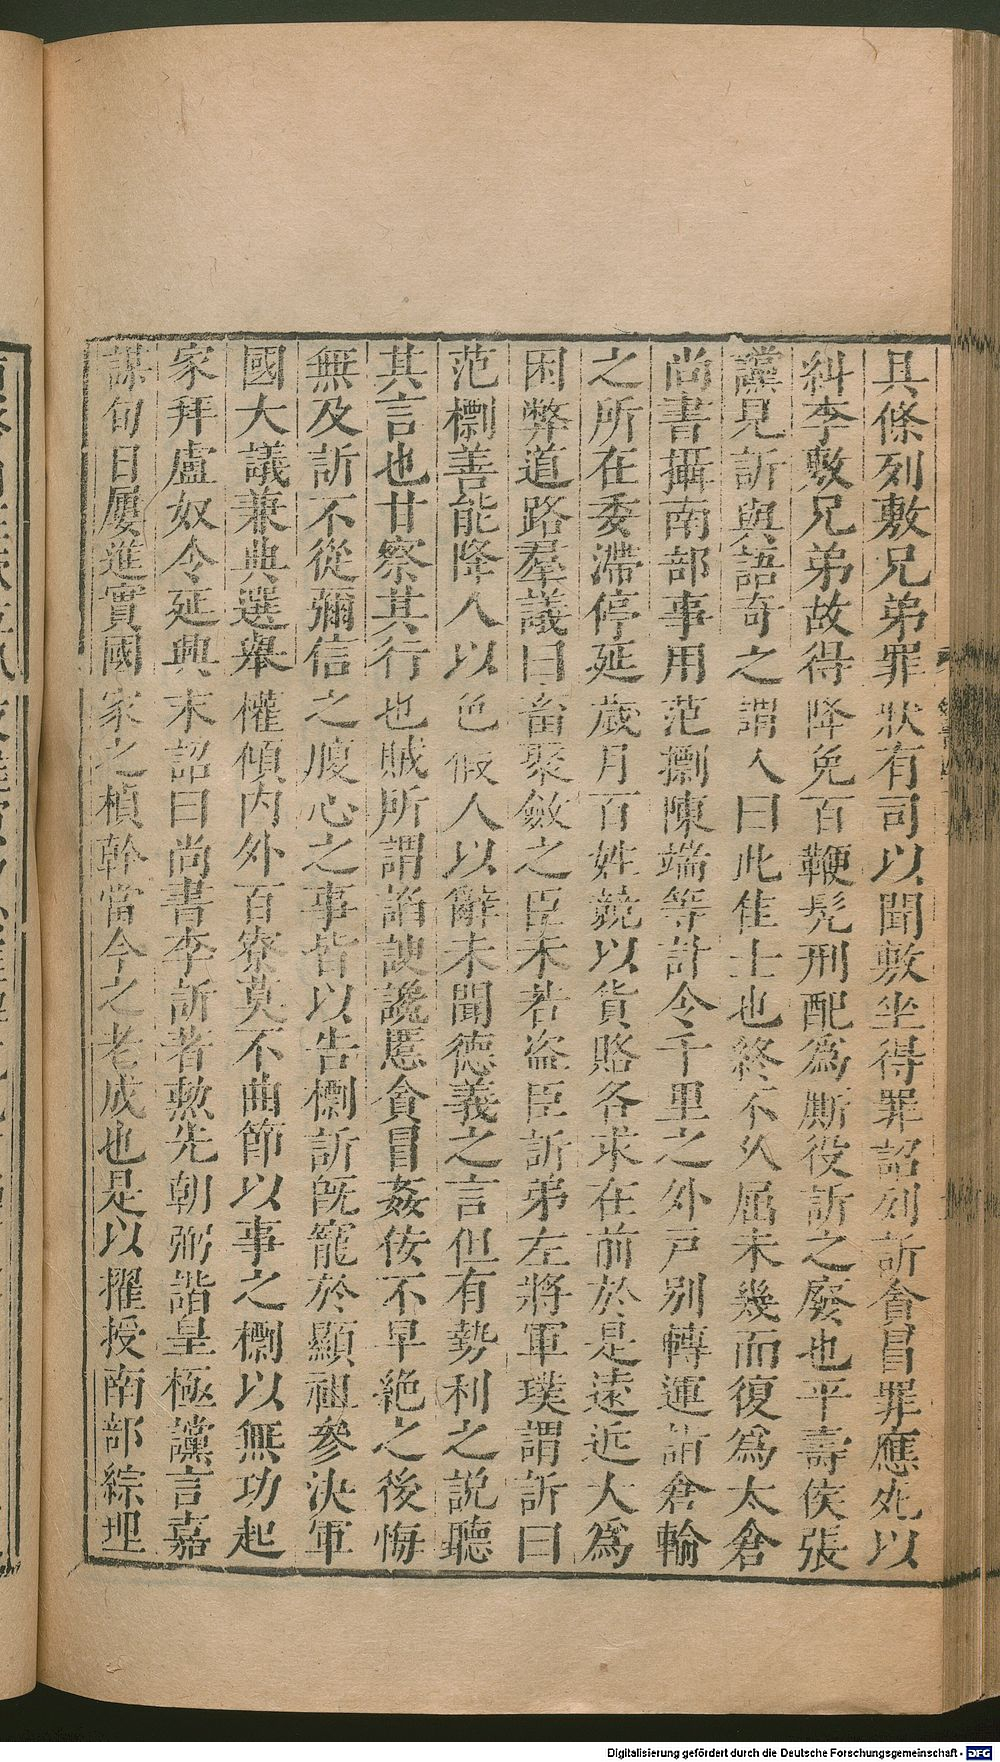 具條列敷兄弟罪狀有司以聞敷坐得罪詔列訢貪冒罪應死以
糾李敷兄弟故得降免百鞭髡刑配爲厮役訢之廢也平壽侯張
讜見訢與語奇之謂人曰此佳士也終不久屈未幾而復爲太倉
尚書攝南部事用范㯹陳端等計令千里之外戸别轉運詣倉輸
之所在委滯停延歲月百姓競以貨賂各求在前於是遠近大爲
困弊道路羣議曰畜聚斂之臣未若盗臣訢弟左將軍璞謂訢曰
范㯹善能降人以色假人以辭未聞德義之言但有勢利之説聽
其言也甘察其行也賊所謂諂諛讒慝貪冒姦佞不早絶之後悔
無及訢不從彌信之腹心之事皆以告㯹訢旣寵於顯祖參決軍
國大議兼典選舉權傾内外百寮莫不曲節以事之㯹以無功起
家拜盧奴令延興末詔曰尚書李訢者勲先朝弼諧皇極讜言嘉
謀旬日屢進實國家之楨幹當今之老成也是以擢授南部綜理
Digitalisierung gefördert durch die Deutsche Forschungsgemeinschaft - DFG